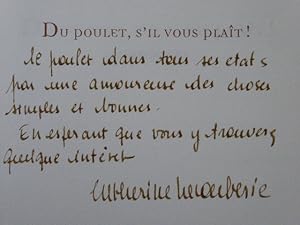 DU POULET, S'IL VOUS PLAÎT !
le poulet dans tous ses etats
par une amoureuse des choses
simples et bonnes.
En esperant que vous y trouverez
quelque intéret
Catherine